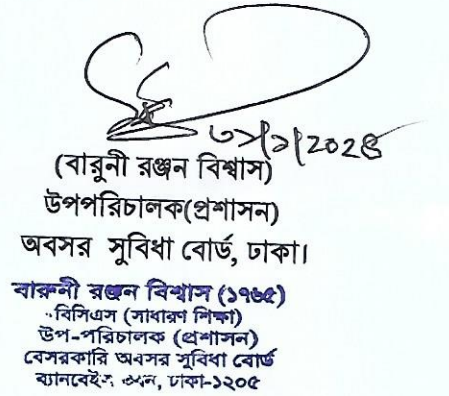 ৩১/১/2024
(বারুনী রঞ্জন বিশ্বাস)
উপপরিচালক(প্রশাসন)
অবসর সুবিধা বোর্ড, ঢাকা।
বারুনী রঞ্জন বিশ্বাস (১৭৬৫)
বিসিএস (সাধারণ শিক্ষা)
উপ-পরিচালক (প্রশাসন)
বেসরকারি অবসর সুবিধা বোর্ড
ব্যানবেইস ভবন, ঢাকা-১২০৫